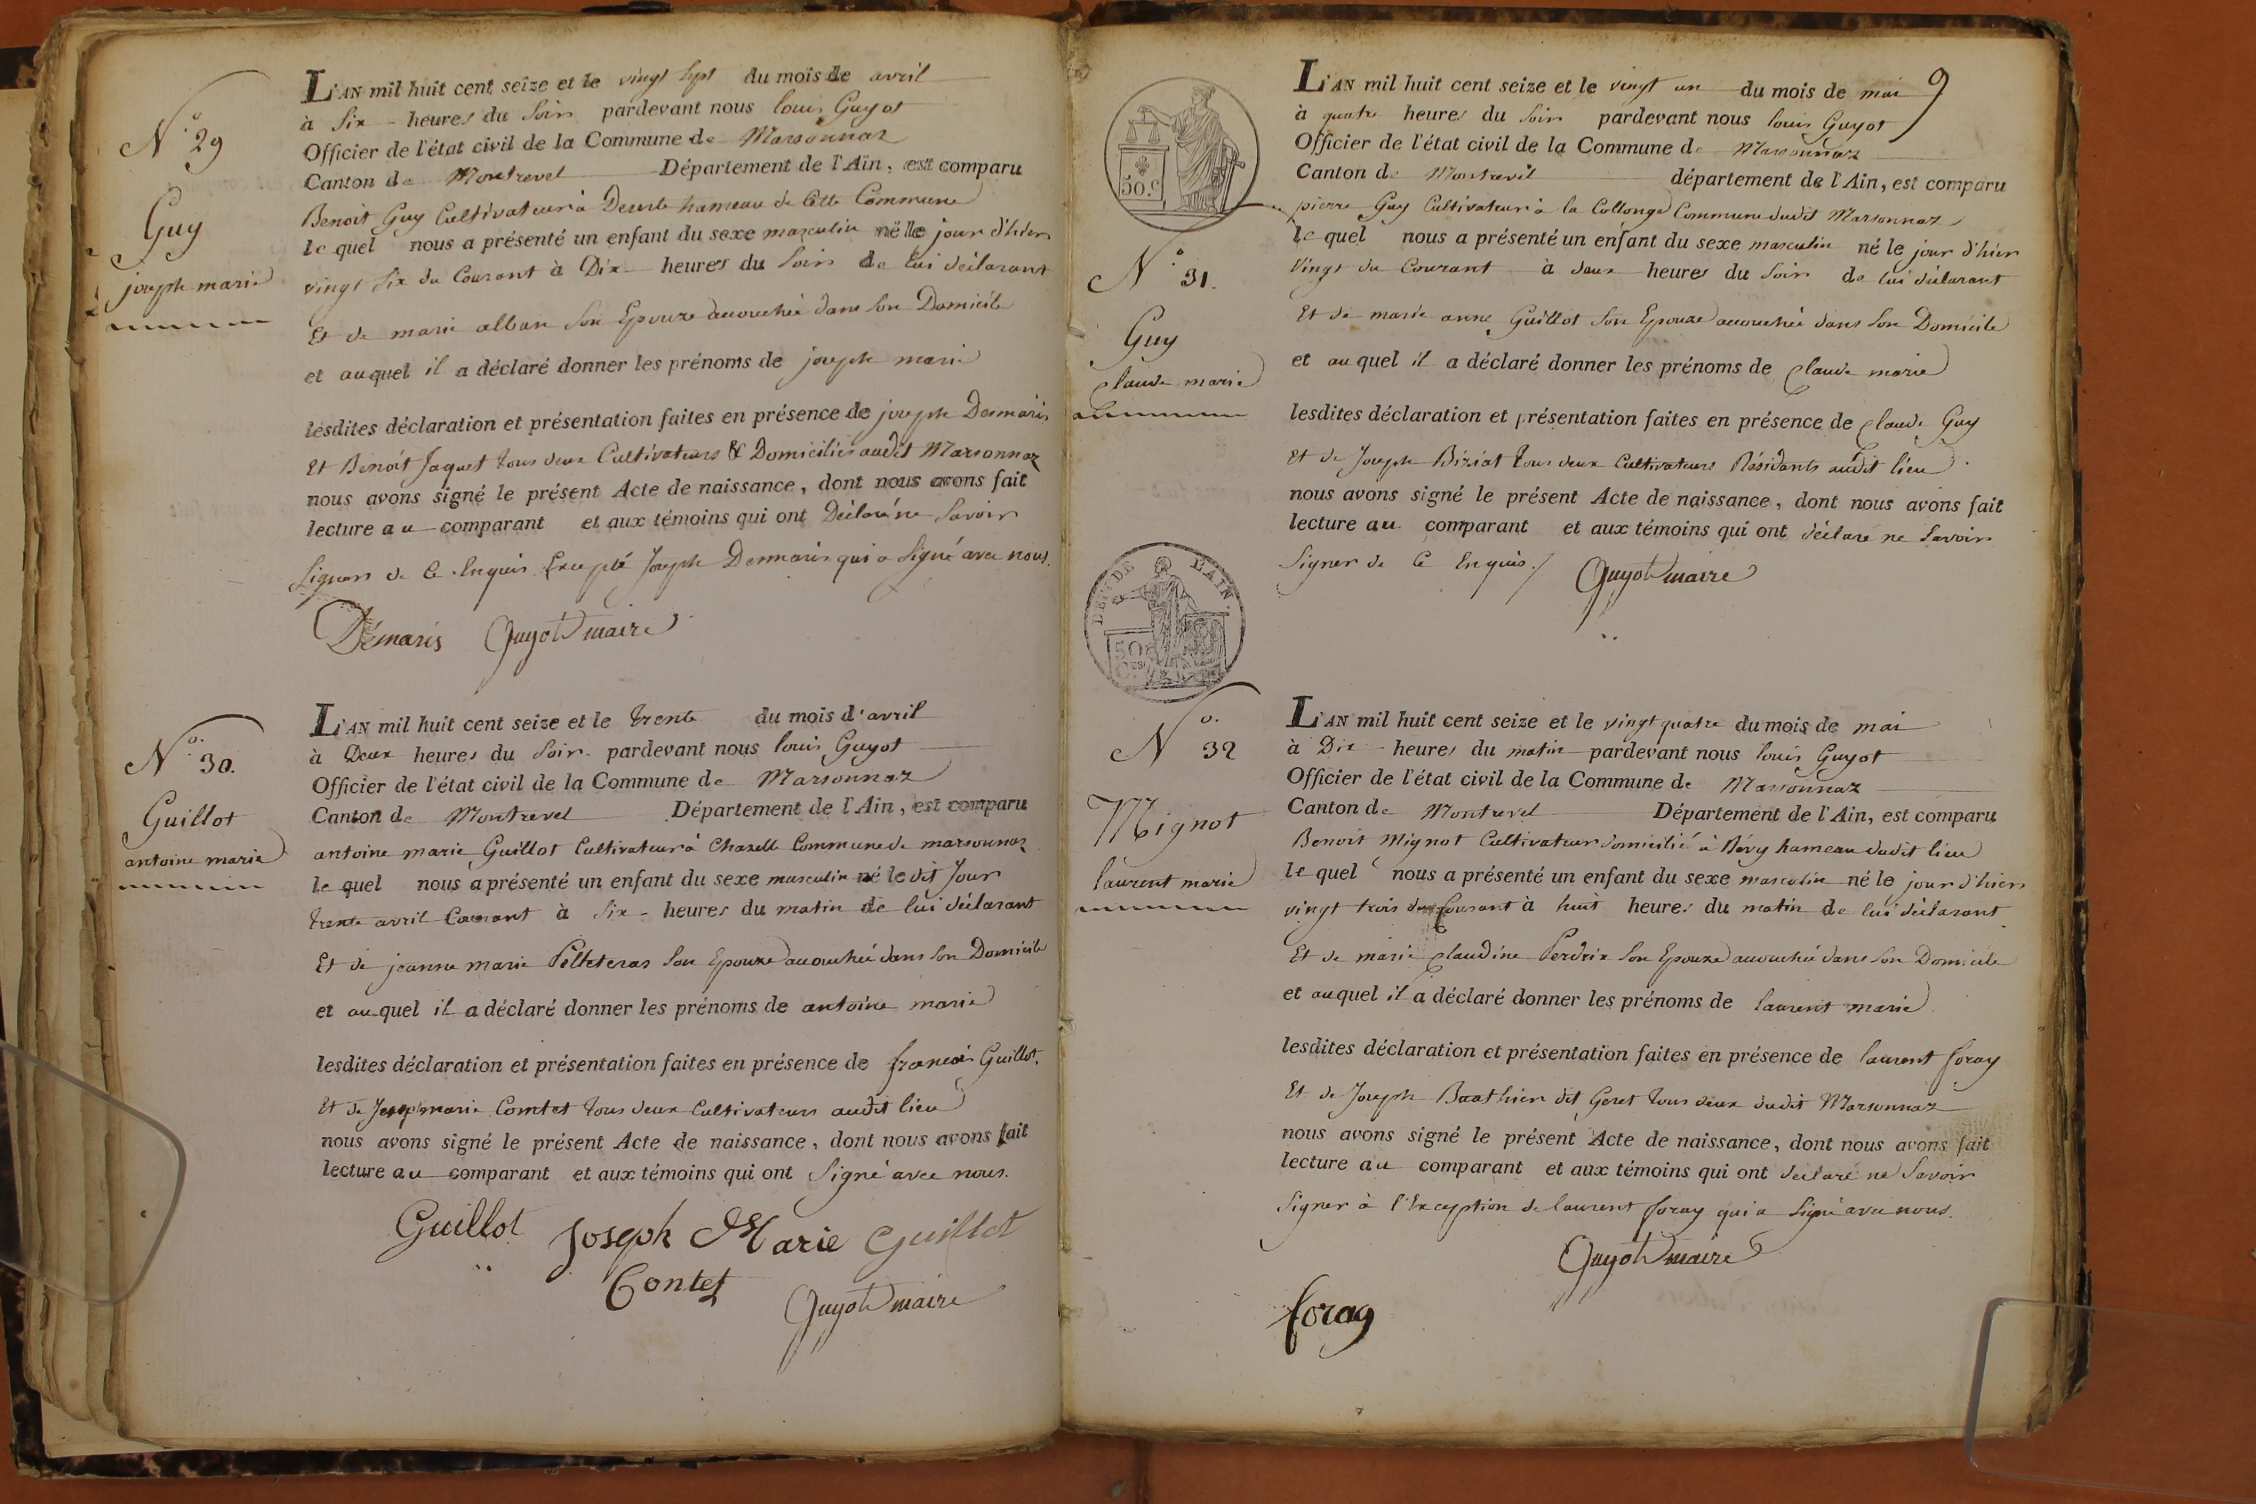 N.o 29
Guy
joseph marie
L'AN mil huit cent seize et le vingt sept du mois de avril
à Six heures du Soir pardevant nous louis Guyot
Officier de l'état civil de la Commune de Marsonnaz
Canton de Montrevel Département de l'Ain, est comparu
Benoit Guy Cultivateur à hameau de Cette Commune
le quel nous a présenté un enfant du sexe masculin né le jour d'hier
vingt Six du Courant à Dix heures du Soir de lui déclarant
Et de marie alban Son Epouze accouchée dans Son Domicile
et auquel il a déclaré donner les prénoms de joseph marie
lesdites déclaration et présentation faites en présence de joseph Desmaris
Et Benoit Jaquet tous deux Cultivateurs & Domiciliés audit Marsonnaz
nous avons signé le présent Acte de naissance, dont nous avons fait
lecture au comparant et aux témoins qui ont Déclaré ne Savoir
Signer de Ce Enquis Excepté Joseph Desmaris qui a Signé avec nous.
Démaris Guyot maire
N.o 30.
Guillot
antoine marie
L'AN mil huit cent seize et le trente du mois d'avril
à Deux heures du Soir pardevant nous louis Guyot
Officier de l'état civil de la Commune de Marsonnaz
Canton de Montrevel Département de l'Ain, est comparu
antoine marie Guillot Cultivateur à Chazelle Commune de marsonnaz
le quel nous a présenté un enfant du sexe masculin né le dit Jour
trente avril Courant à Six heures du matin de lui déclarant
Et de jeanne marie Pelleteras Son Epouze accouchée dans Son Domicile
et auquel il a déclaré donner les prénoms de antoine marie
lesdites déclaration et présentation faites en présence de francois Guillot,
Et de Joseph marie Comtet tous deux Cultivateurs audit lieu
nous avons signé le présent Acte de naissance, dont nous avons fait
lecture au comparant et aux témoins qui ont Signé avec nous.
Guillot Joseph Marie Guillot
Contet
Guyot maire
9
50.c
N.o 31.
Guy
Claude marie
L'AN mil huit cent seize et le vingt un du mois de mai
à quatre heures du Soir pardevant nous louis Guyot
Officier de l'état civil de la Commune de Marsonnaz
Canton de Montrevel département de l'Ain, est comparu
pierre Guy Cultivateur à la Collonge Commune dudit Marsonnaz
le quel nous a présenté un enfant du sexe masculin né le jour d'hier
Vingt du Courant à deux heures du Soir de lui déclarant
Et de marie anne Guillot Son Epouze accouchée dans Son Domicile
et auquel il a déclaré donner les prénoms de Claude marie
lesdites déclaration et présentation faites en présence de Claude Guy
Et de Joseph Biziat tous deux Cultivateurs Résidants audit lieu
nous avons signé le présent Acte de naissance, dont nous avons fait
lecture au comparant et aux témoins qui ont déclaré ne Savoir
Signer de Ce Enquis./ Guyot maire
DEP. DE L'AIN
50
N.o 32
Mignot
laurent marie
L'AN mil huit cent seize et le vingt quatre du mois de mai
à Dix heures du matin pardevant nous louis Guyot
Officier de l'état civil de la Commune de Marsonnaz
Canton de Montrevel Département de l'Ain, est comparu
Benoit Mignot Cultivateur domicilié à Bévy hameau dudit lieu
le quel nous a présenté un enfant du sexe masculin né le jour d'hier
vingt trois du Courant à huit heures du matin de lui déclarant
Et de marie Claudine Perdrix Son Epouze accouchée dans Son Domicile
et auquel il a déclaré donner les prénoms de laurent marie
lesdites déclaration et présentation faites en présence de laurent foray
Et de Joseph Baathier dit Geret tous deux dudit Marsonnaz
nous avons signé le présent Acte de naissance, dont nous avons fait
lecture au comparant et aux témoins qui ont déclaré ne Savoir
Signer à l'Exception de laurent foray qui a Signé avec nous.
Guyot maire
foray